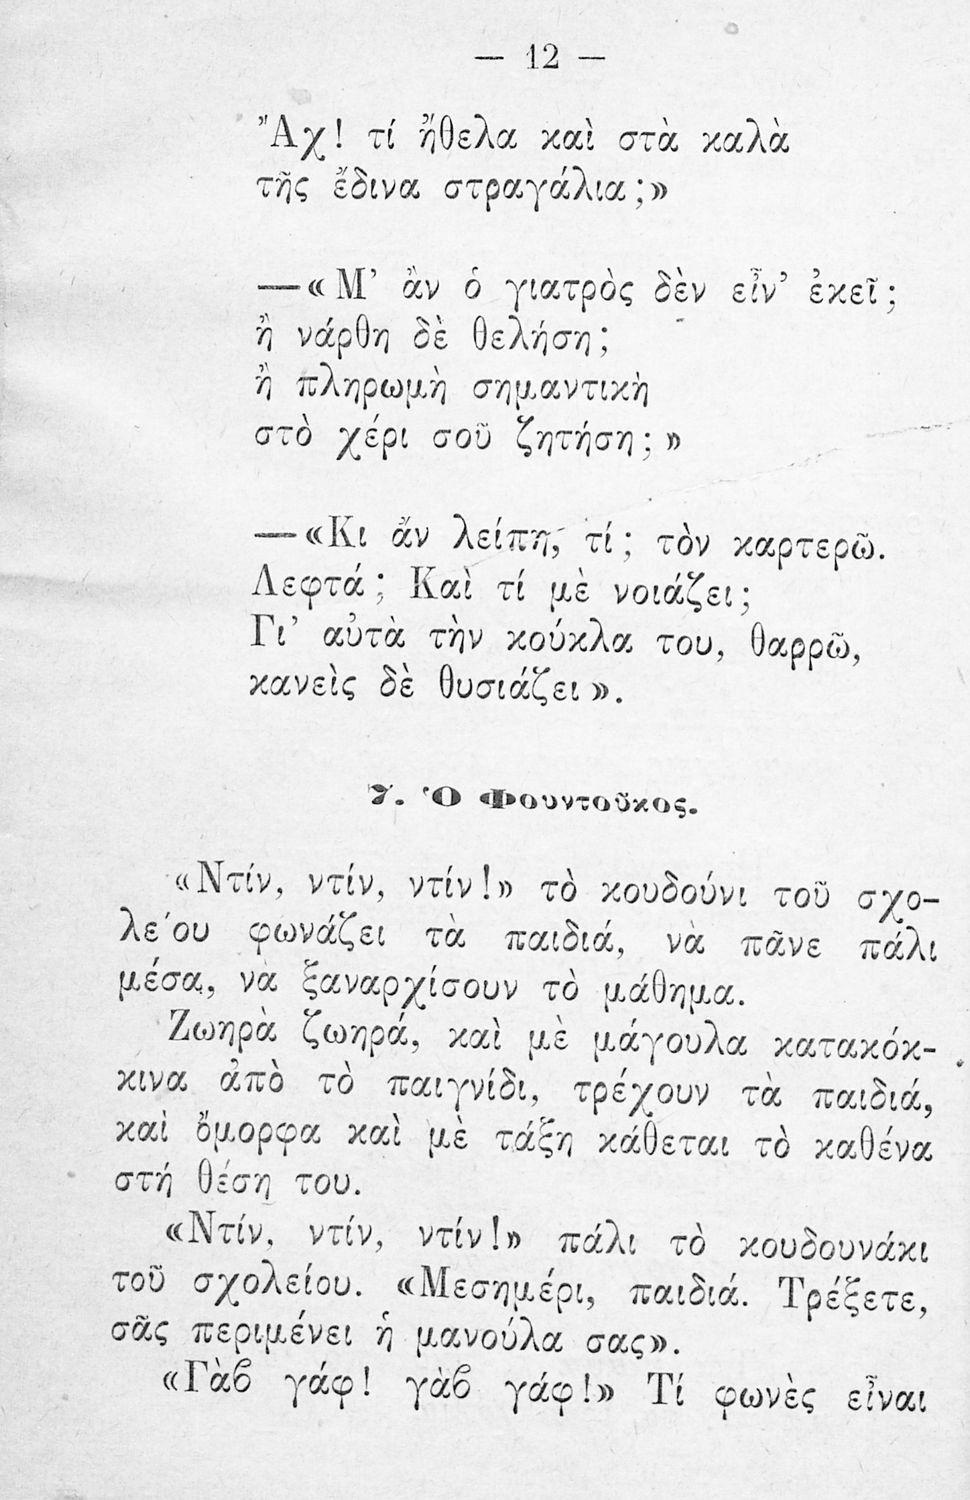 — 12 —
Ἄχ! τί ἤθελα καὶ στὰ καλὰ
τῆς ἔδινα στραγάλια;»
—«Μ’ ἂν ὁ γιατρὸς δὲν εἶν’ ἐκεῖ;
ἢ νάρθη δὲ θελήση;
ἢ πληρωμὴ σημαντικὴ
στὸ χέρι σοῦ ζητήση;»
—«Κι ἄν λείπη, τί; τὸν καρτερῶ.
Λεφτά; Καὶ τί μὲ νοιάζει;
Γι’ αὐτὰ τὴν κούκλα του, θαρρῶ,
κανεὶς δὲ θυσιάζει».
7. Ὁ Φουντοῦκος.
«Ντίν, ντίν, ντίν!» τὸ κουδούνι τοῦ σχο-
λείου φωνάζει τὰ παιδιά, νὰ πᾶνε πάλι
μέσα, νὰ ξαναρχίσουν τὸ μάθημα.
Ζωηρὰ ζωηρά, καὶ μὲ μάγουλα κατακόκ-
κινα ἀπὸ τὸ παιγνίδι, τρέχουν τὰ παιδιά,
καὶ ὄμορφα καὶ μὲ τάξη κάθεται τὸ καθένα
στή θέση του.
«Ντίν, ντίν, ντίν!» πάλι τὸ κουδουνάκι
τοῦ σχολείου. «Μεσημέρι, παιδιά. Τρέξετε,
σᾶς περιμένει ἡ μανούλα σας».
«Γὰϐ γάφ! γὰϐ γάφ!» Τί φωνὲς εἶναι